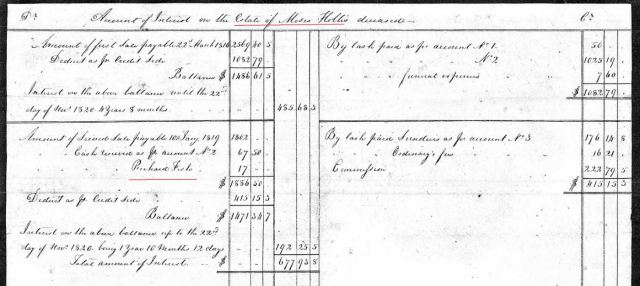 Dr. Amount of Interest on the Estate of Moses Hollis deceased Cr.
Amount of first Sale payable 22nd March 1816 2569 40 5
Deduct as pr Credit Side 1082 79 -
Ballance $ 1486 61 5
Interest on the above ballance until the 22nd
day of Novr 1820. 4 Years 8 months - - 485 68 5
Amount of Second Sale payable 10th Jany 1819 1802 - -
Cash received as pr account No 2 67 50
Richard Fish 17 -
$ 1886 50
Deduct as pr Credit Side 415 15 3
Ballance $ 1471 34 7
Interest on the above ballance up to the 22nd
day of Novr 1820. being 1 Year 10 Months 12 days 192 25 5
Total amount of Interest $ 677 93 8
By Cash paid as pr account No 1. 50 -
" " No 2 1025 19
" " funeral expenses 7 60
$ 1082 79 -
By Cash paid Sundries as pr account No 3 176 14 8
Ordinary's fees 16 21 -
Commission 222 79 5
$ 415 15 3